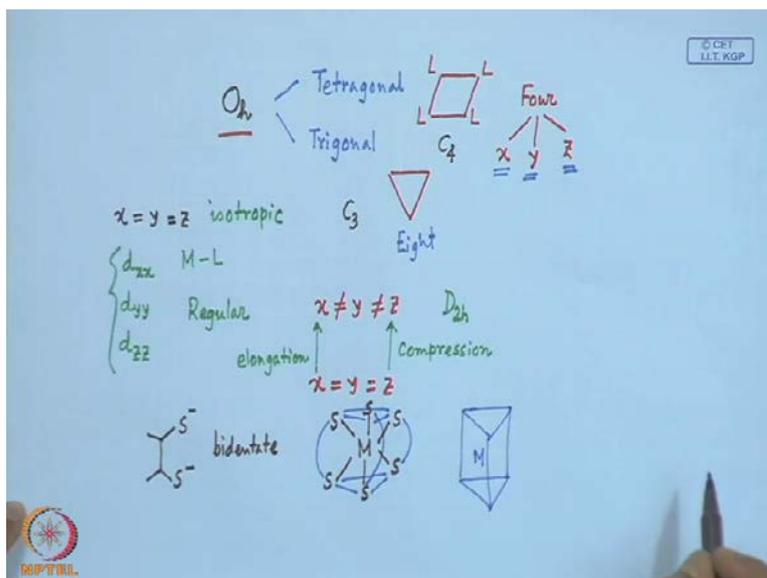 © CET
I.I.T. KGP
Oh
Tetragonal
Trigonal
L L
L L
C4
Four
x y z
x = y = z isotropic
C3
Eight
dxx M-L
dyy Regular
dzz
x ≠ y ≠ z D2h
elongation
compression
x = y = z
S⁻
S⁻
bidentate
S S S
M
S S S
M
NPTEL